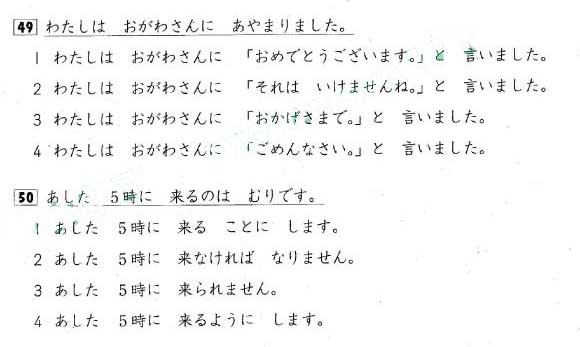 49 わたしは おがわさんに あやまりました。
1 わたしは おがわさんに 「おめでとうございます。」と 言いました。
2 わたしは おがわさんに 「それは いけませんね。」と 言いました。
3 わたしは おがわさんに 「おかげさまで。」と 言いました。
4 わたしは おがわさんに 「ごめんなさい。」と 言いました。
50 あした 5時に 来るのは むりです。
1 あした 5時に 来る ことに します。
2 あした 5時に 来なければ なりません。
3 あした 5時に 来られません。
4 あした 5時に 来るように します。